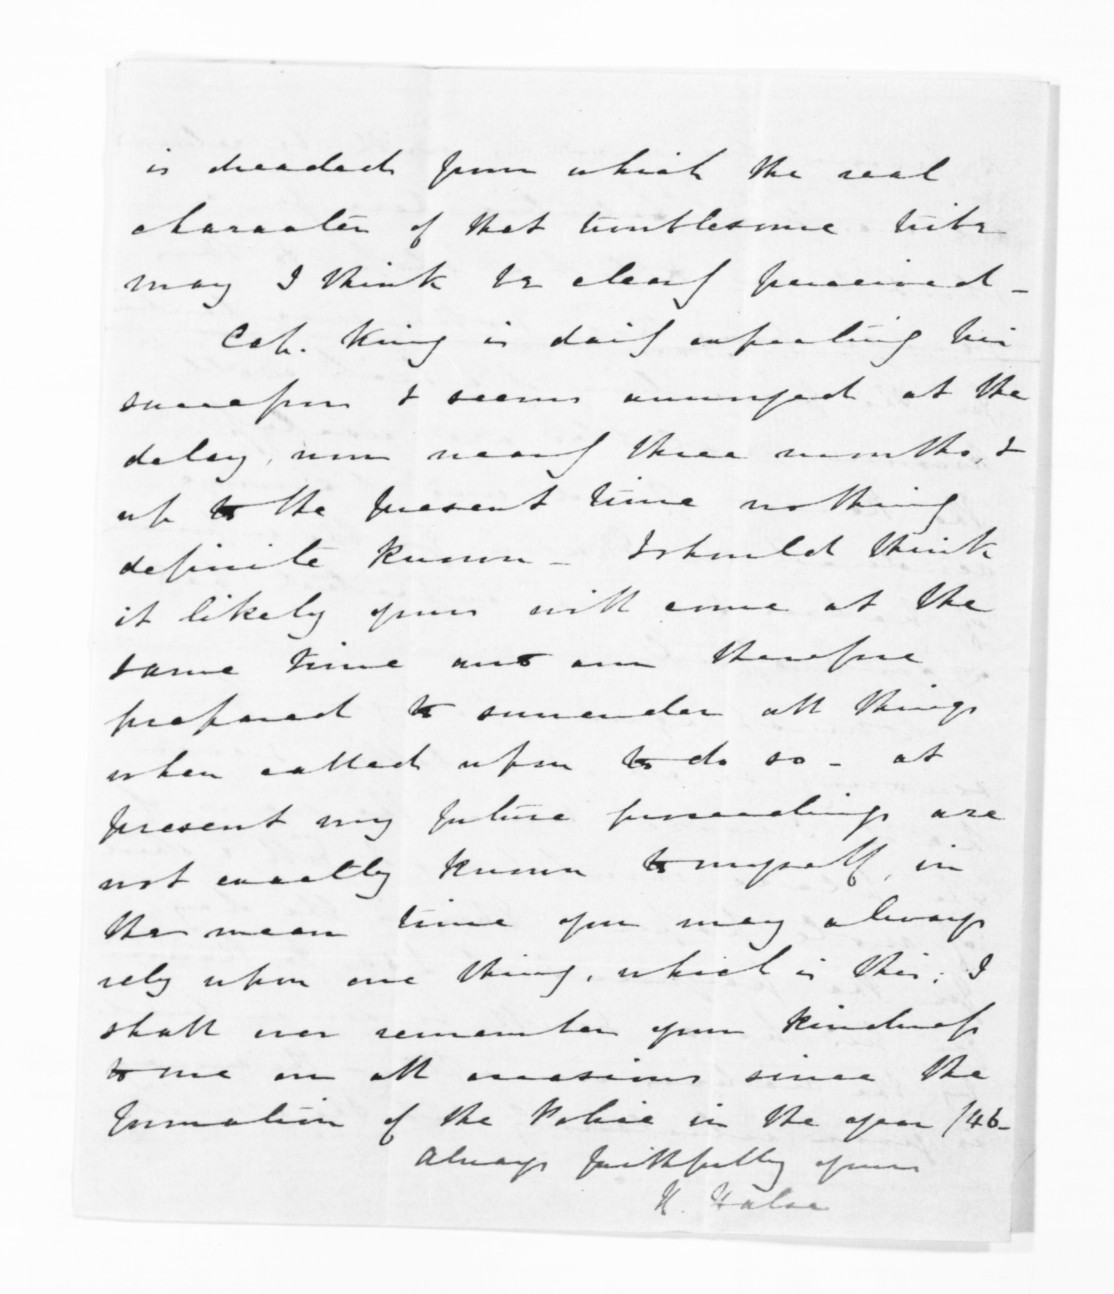 is dreaded from which the real
character of that troublesome tribe
may I think be clearly perceived -
Cap. King is daily expecting his
successor & seems annoyed at the
delay, now nearly three months, &
up to the present time nothing
definite known - I should think
it likely yours will come at the
same time and am therefore
prepared to surrender all things
when called upon to do so - at
present my future proceedings are
not exactly known to myself, in
the mean time you may always
rely upon one thing, which is this, I
shall ever remember your kindness
to me on all occasions since the
formation of the Police in the year /46-
Always faithfully yours
H. Halse